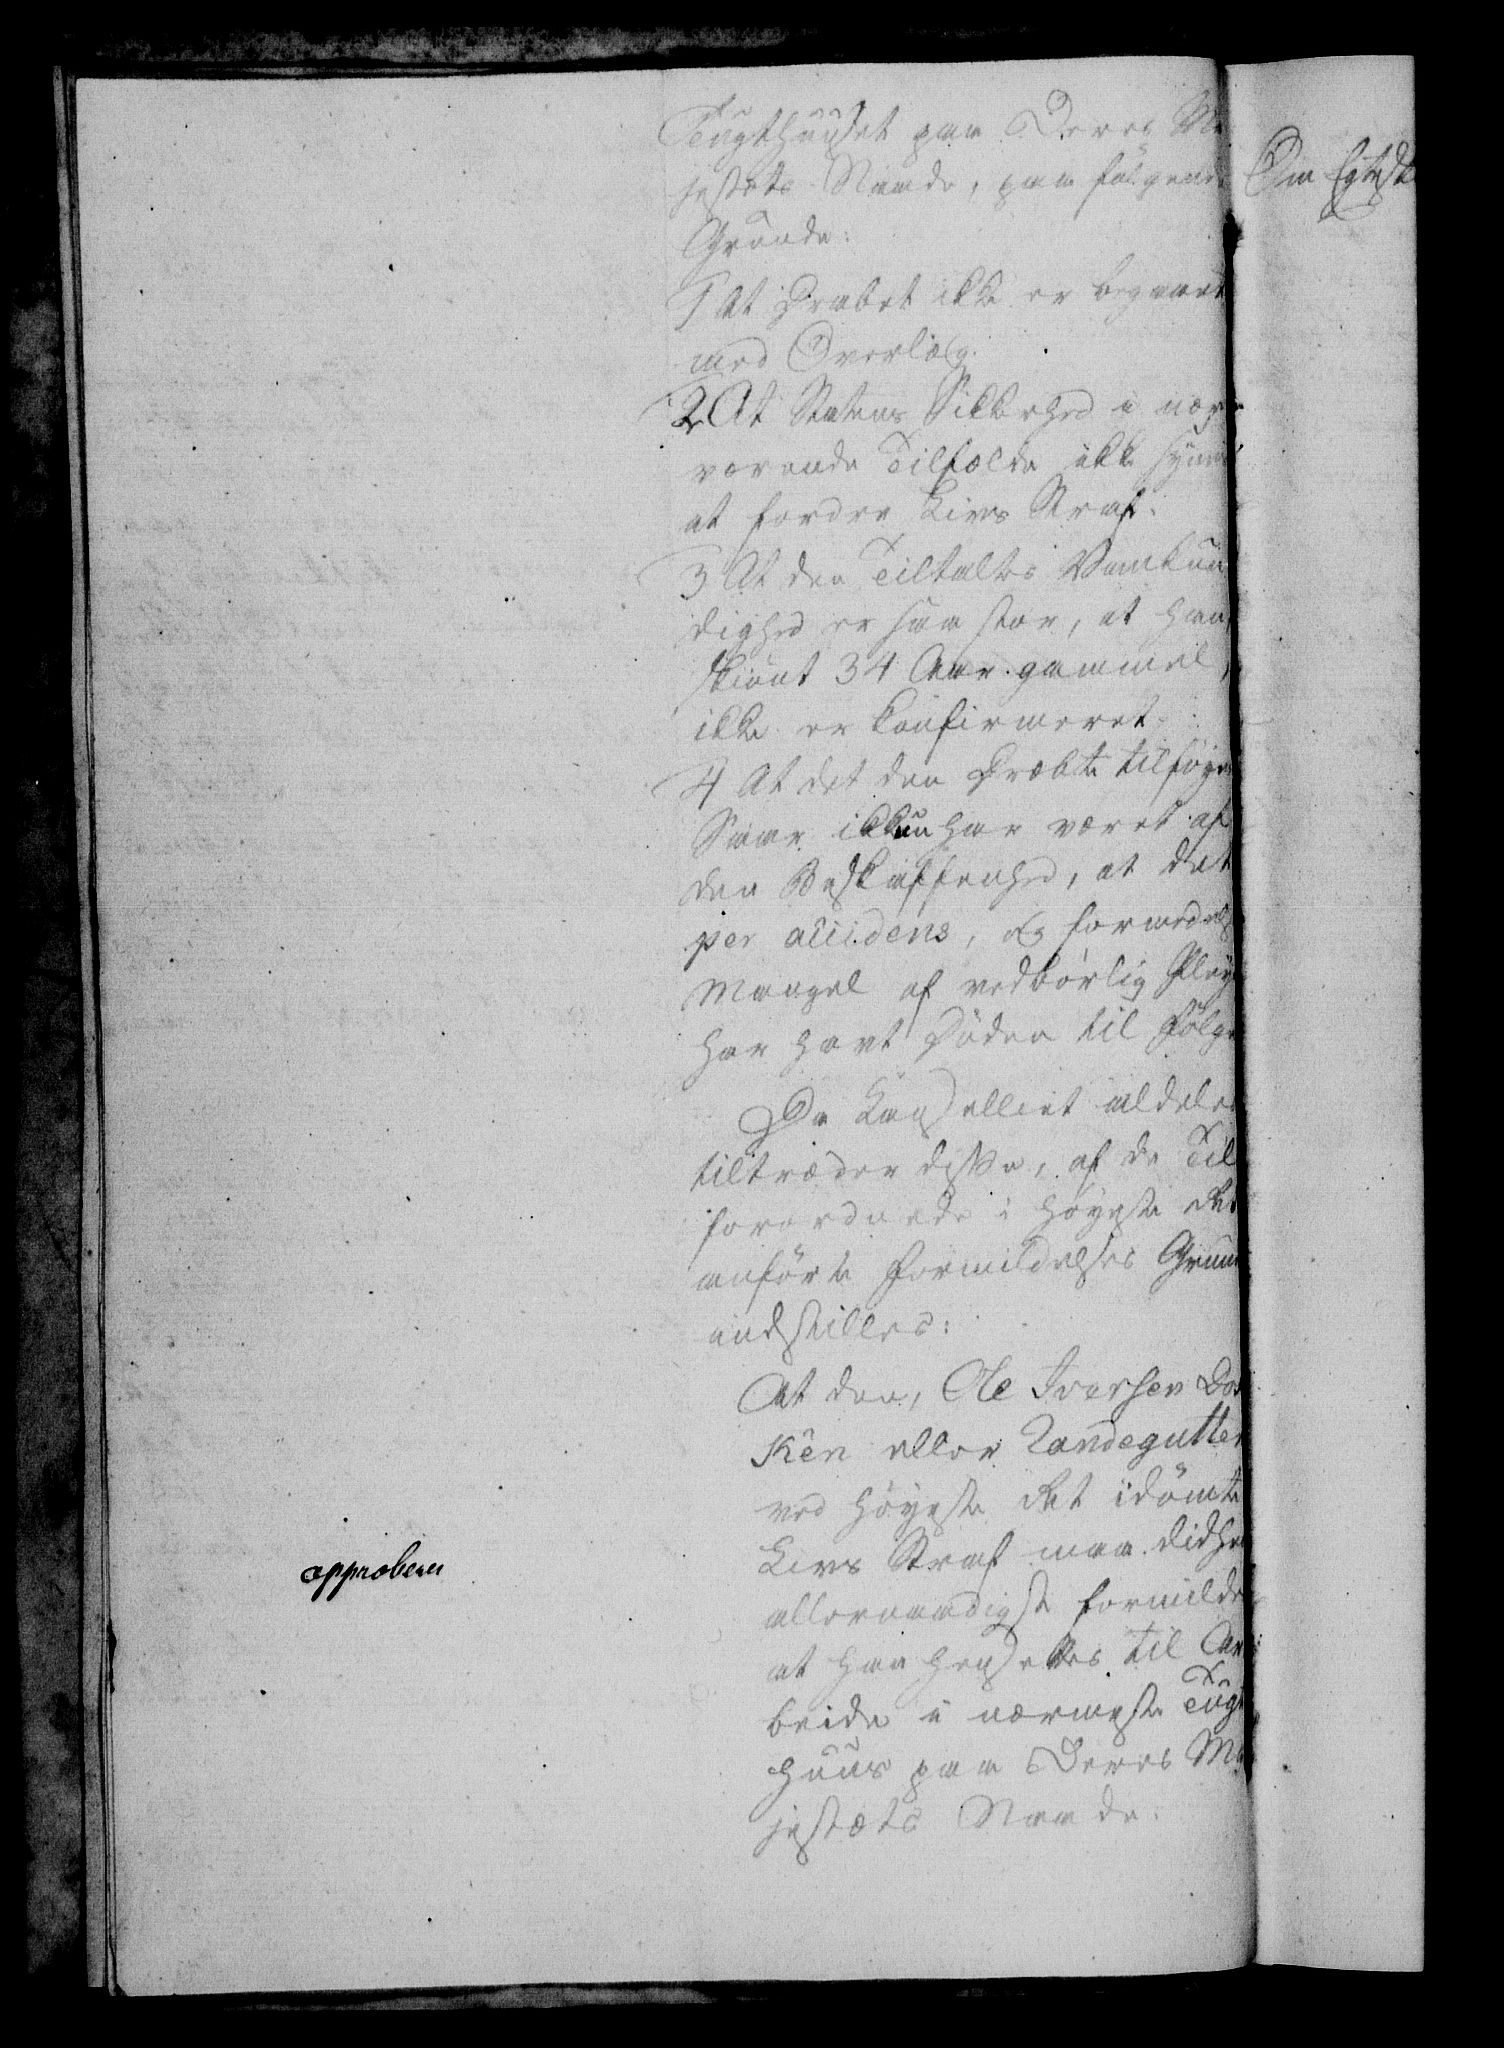 Tugthuuset paa Deres Ma
jestets Naade, paa følgende
Grunde:
1 At Drabet ikke er begaaet
med Overlæg.
2 At Statens Sikkerhed i nær
værende Tilfælde ikke synes
at fordre Livs Straf.
3 At den Tiltaltes Vankun
dighed er saa stor, at han
skiönt 34 Aar gammel,
ikke er konfirmeret.
4 At det den Dræbte tilføyede
Saar ikkun har været af
den Beskaffenhed, at det
per accidens, og formedelst
Mangel af vedbørlig Pleye
har havt Døden til Følge
Da Kanselliet aldeles
tiltræder disse, af de Til
forordnede i Høyeste Ret
anførte Formildelses Grunde
indstilles:
At den, Ole Iversen
Ken eller Tandegutten
ved Høyeste Ret idömte
Livs Straf maa didhen
allernaadigst formildes
at han hensættes til Ar
beide i nærmeste Tugt
huus paa Deres Ma
jestæts Naade.
approberes
Om